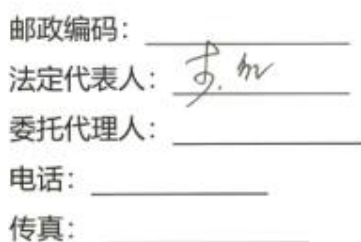 邮政编码：
法定代表人：
委托代理人：
电话：
传真：